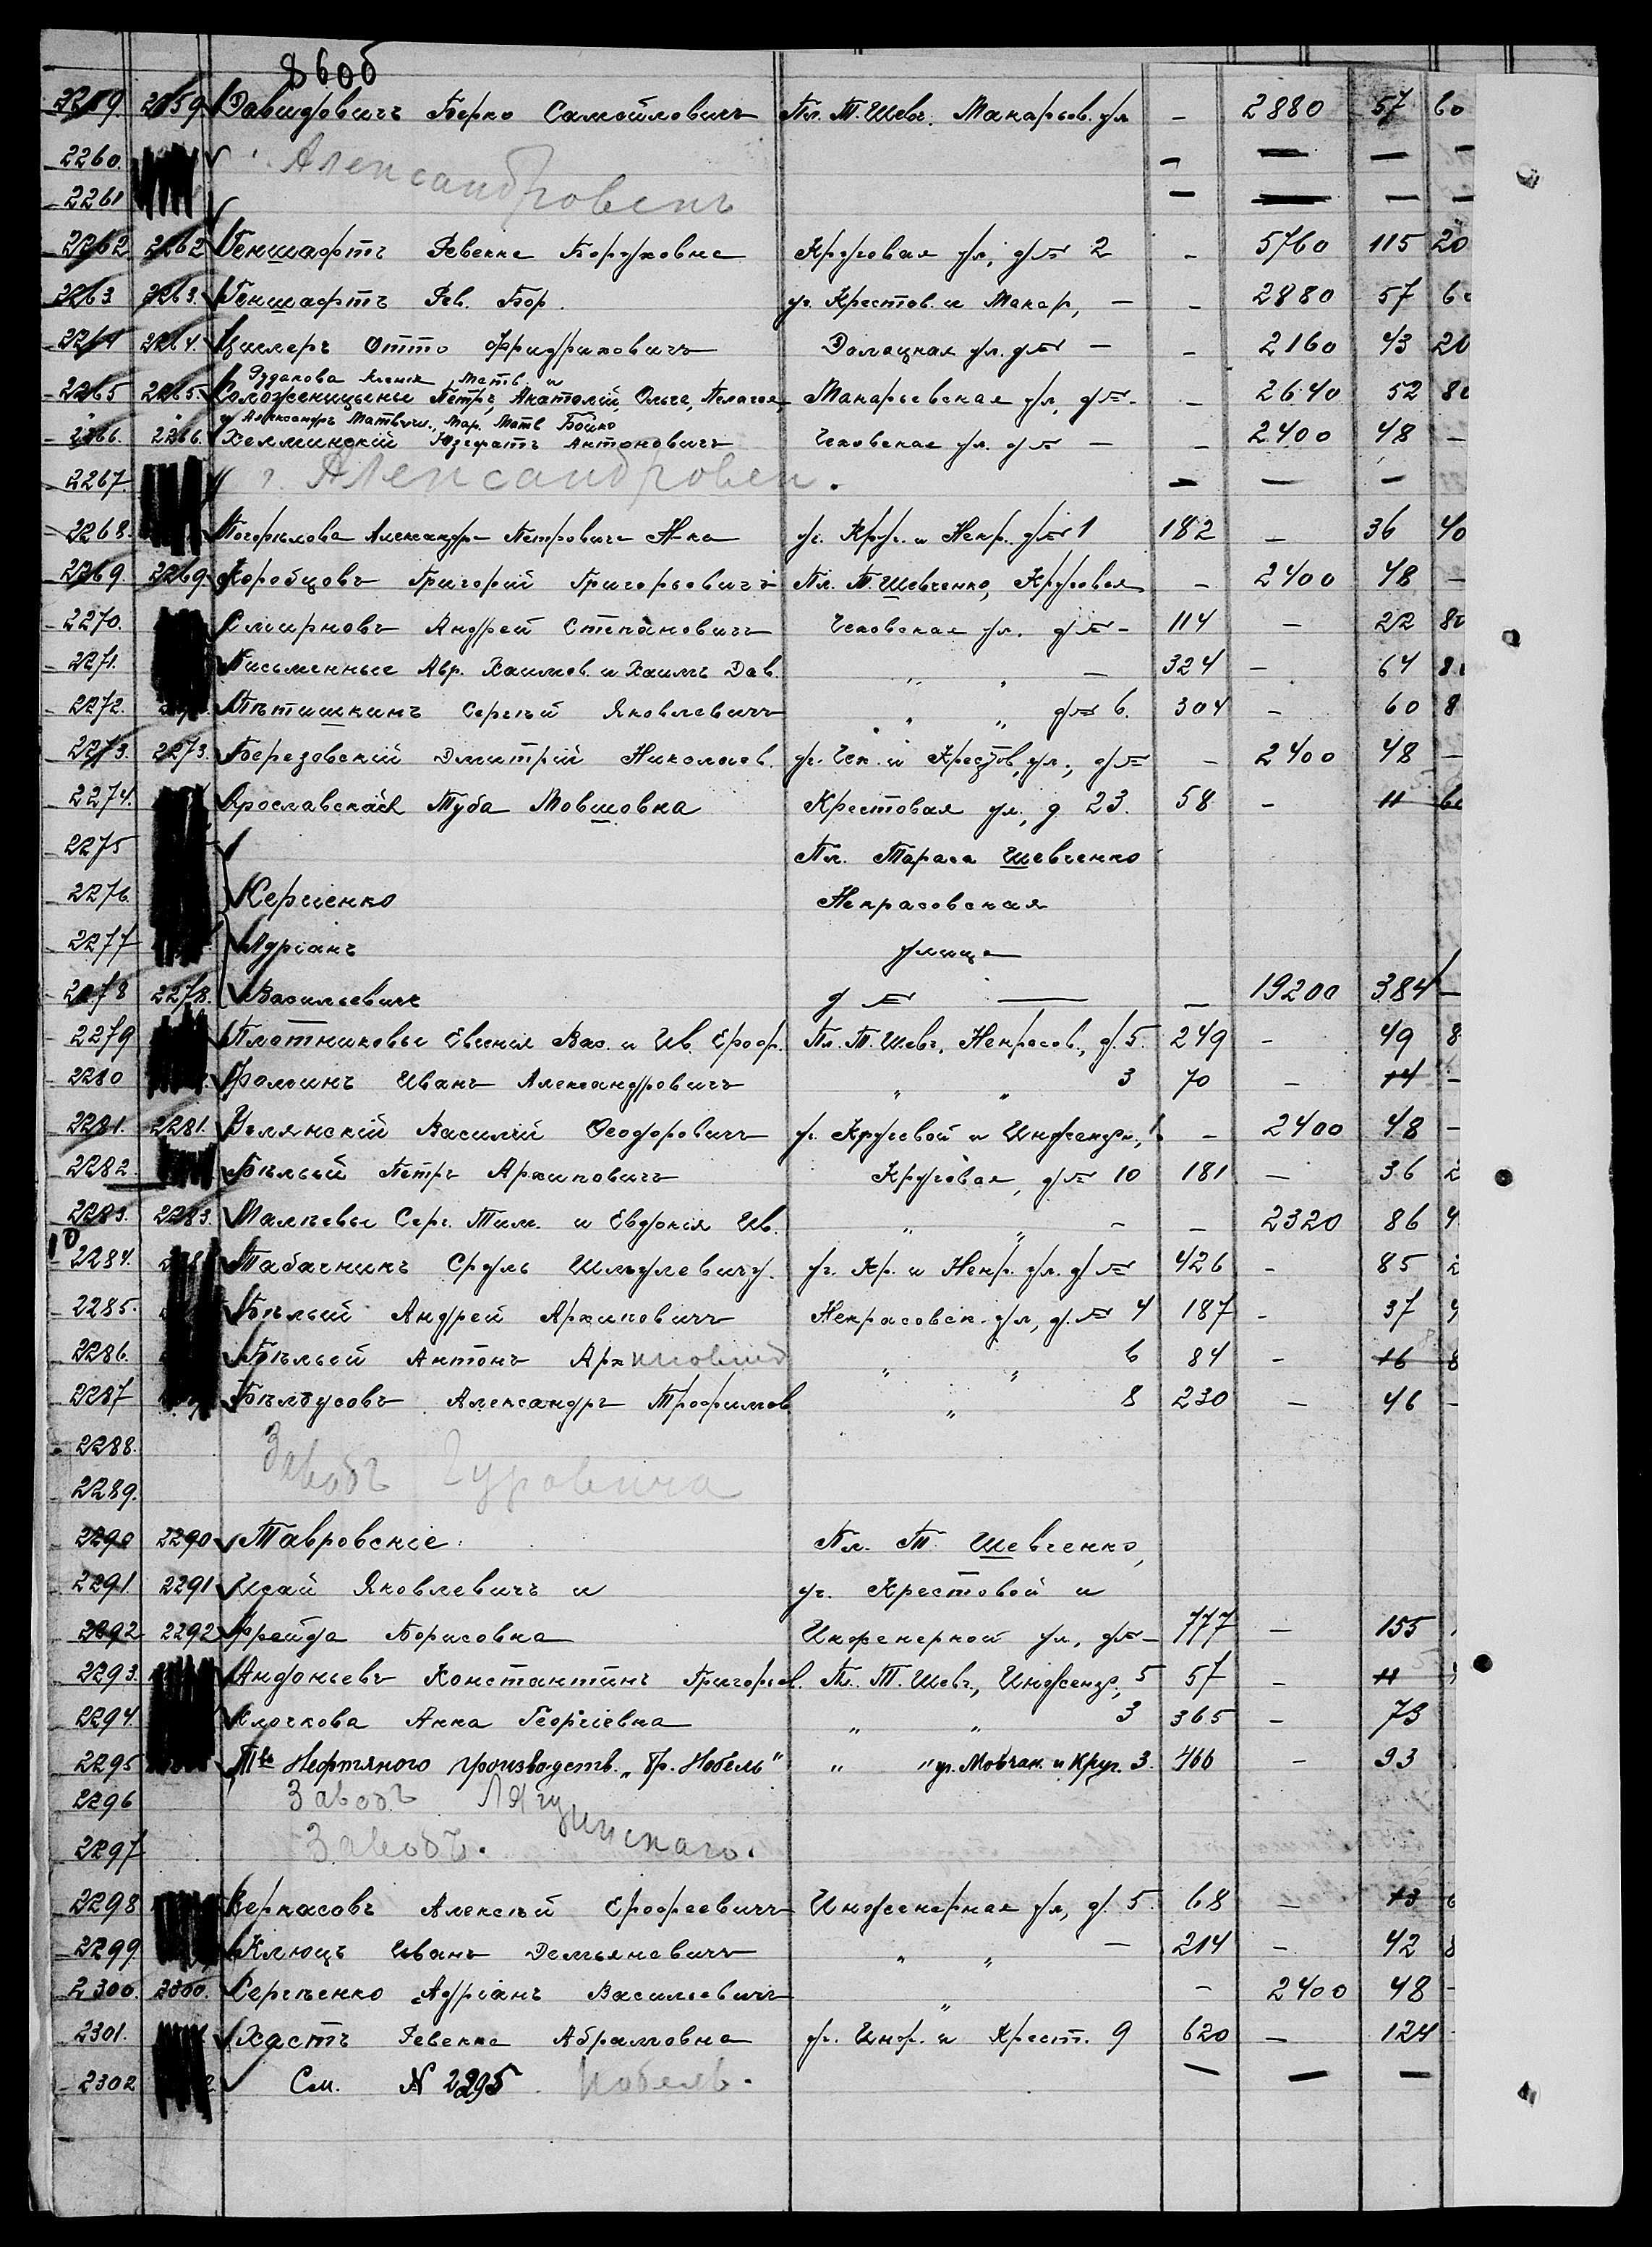 86об
2259. 2259 Давидовичъ Берко Самойловичъ Пл. Т. Шевч. Макарьев. ул. - 2880 57 60
2260. Александровскъ - - - -
2261 - - - -
2262 2262 Геншафтъ Ревекка Боруховна Круговая ул, д № 2 - 5760 115 20
2263. 2263. Геншафтъ Рев. Бор. уг. Крестов. и Макар, - - 2880 57 6
2264 2264. Циглеръ Отто Фридриховичъ ул. д № - - 2160 43 20
Рудакова Матв. и
2265 2265. Соложеницыны Петръ, Анатолій, Ольга, Пелагея, Макарьевская ул, д № - - 2640 52 80
и Александръ Матвѣев., Мар. Матв Бойко
2266. 2266. Хелминскій Юзефатъ Антоновичъ Чеховская ул. д № - - 2400 48 -
2267. г. Александровск. - - -
2268. Погорѣлова Александра Петровича Н-ка уг. Круг. и Некр. д № 1 182 - 36 40
2269. 2269 Коробцовъ Григорій Григорьевичъ Пл. Т. Шевченко, Круговая - 2400 48 -
2270. Смирновъ Андрей Степановичъ Чеховская ул. д № - 114 - 22 80
2271. Письменные Авр. Хаимов. и Хаимъ Дав. " " - 324 - 64 8
2272. Пѣтишкинъ Сергѣй Яковлевичъ " " д № 6. 304 - 60 8
2273. 2273. Березовскій Дмитрій Николаев. уг. Чех. и Крестов, ул., д № - 2400 48 -
2274. Ярославская Туба Мовшовна Крестовая ул., д 23. 58 - 11 6
2275 Пл. Тараса Шевченко
2276. Сергіенко Некрасовская
2277 Адріанъ улица
2278 2278. Васильевичъ д № - - 19200 384 -
2279 Плотниковы Евгенія Вас. и Ив. Ероф. Пл. Т. Шевч. Некрасов., д. 5. 249 - 49 8
2280 Фоминъ Иванъ Александровичъ " " 3 70 - 14 -
2281. 2281. Василій Ѳеодоровичъ уг. Круговой и Инженерн, - 2400 48 -
2282. Бѣлый Петръ Архиповичъ Круговая, д № 10 181 - 36 2
2283. 2283. Малѣевы Серг. Тим. и Евдокія Ив. " " - - 2320 86 4
10
2284. Табачникъ Сруль Шмулевичу. уг. Кр. и Некр. ул. д № 426 - 85 2
2285. Бѣлый Андрей Архиповичъ Некрасовск. ул, д. № 4 187 - 37 4
2286. Бѣлый Антонъ Архиповичъ " " 6 84 - 16 8
2287 Бѣлоусовъ Александръ Трофимов " 8 230 - 46 -
2288. Заводъ Гуровича
2289.
2290 2290 Тавровскіе Пл. Т. Шевченко,
2291. 2291 Исай Яковлевичъ и уг. Крестовой и
2292 2292 Фрейда Борисовна Инженерной ул, д № - 777 - 155
2293. Андоньевъ Константинъ Григорьев. Пл. Т. Шевч, Инженер., 5 57 - 11
2294. Клочкова Анна Георгіевна " " 3 365 - 73
2295 Т-во Нефтяного производств. „Бр. Нобель" " " уг. Мовчан. и Круг. 3. 466 - 93
2296 Заводъ
2297 Заводъ.
2298 Веркасовъ Алексѣй Ерофеевичъ Инженерная ул, д. 5. 68 - 13 6
2299 Клюцъ Иванъ Демьяновичъ " " - 214 - 42 8
2300. 2300. Сергѣенко Адріанъ Васильевичъ " - 2400 48 -
2301. Хастъ Ревекка Абрамовна уг. Инж. и Крест. 9 620 - 124
2302 См. № 2295 Нобель. - - -